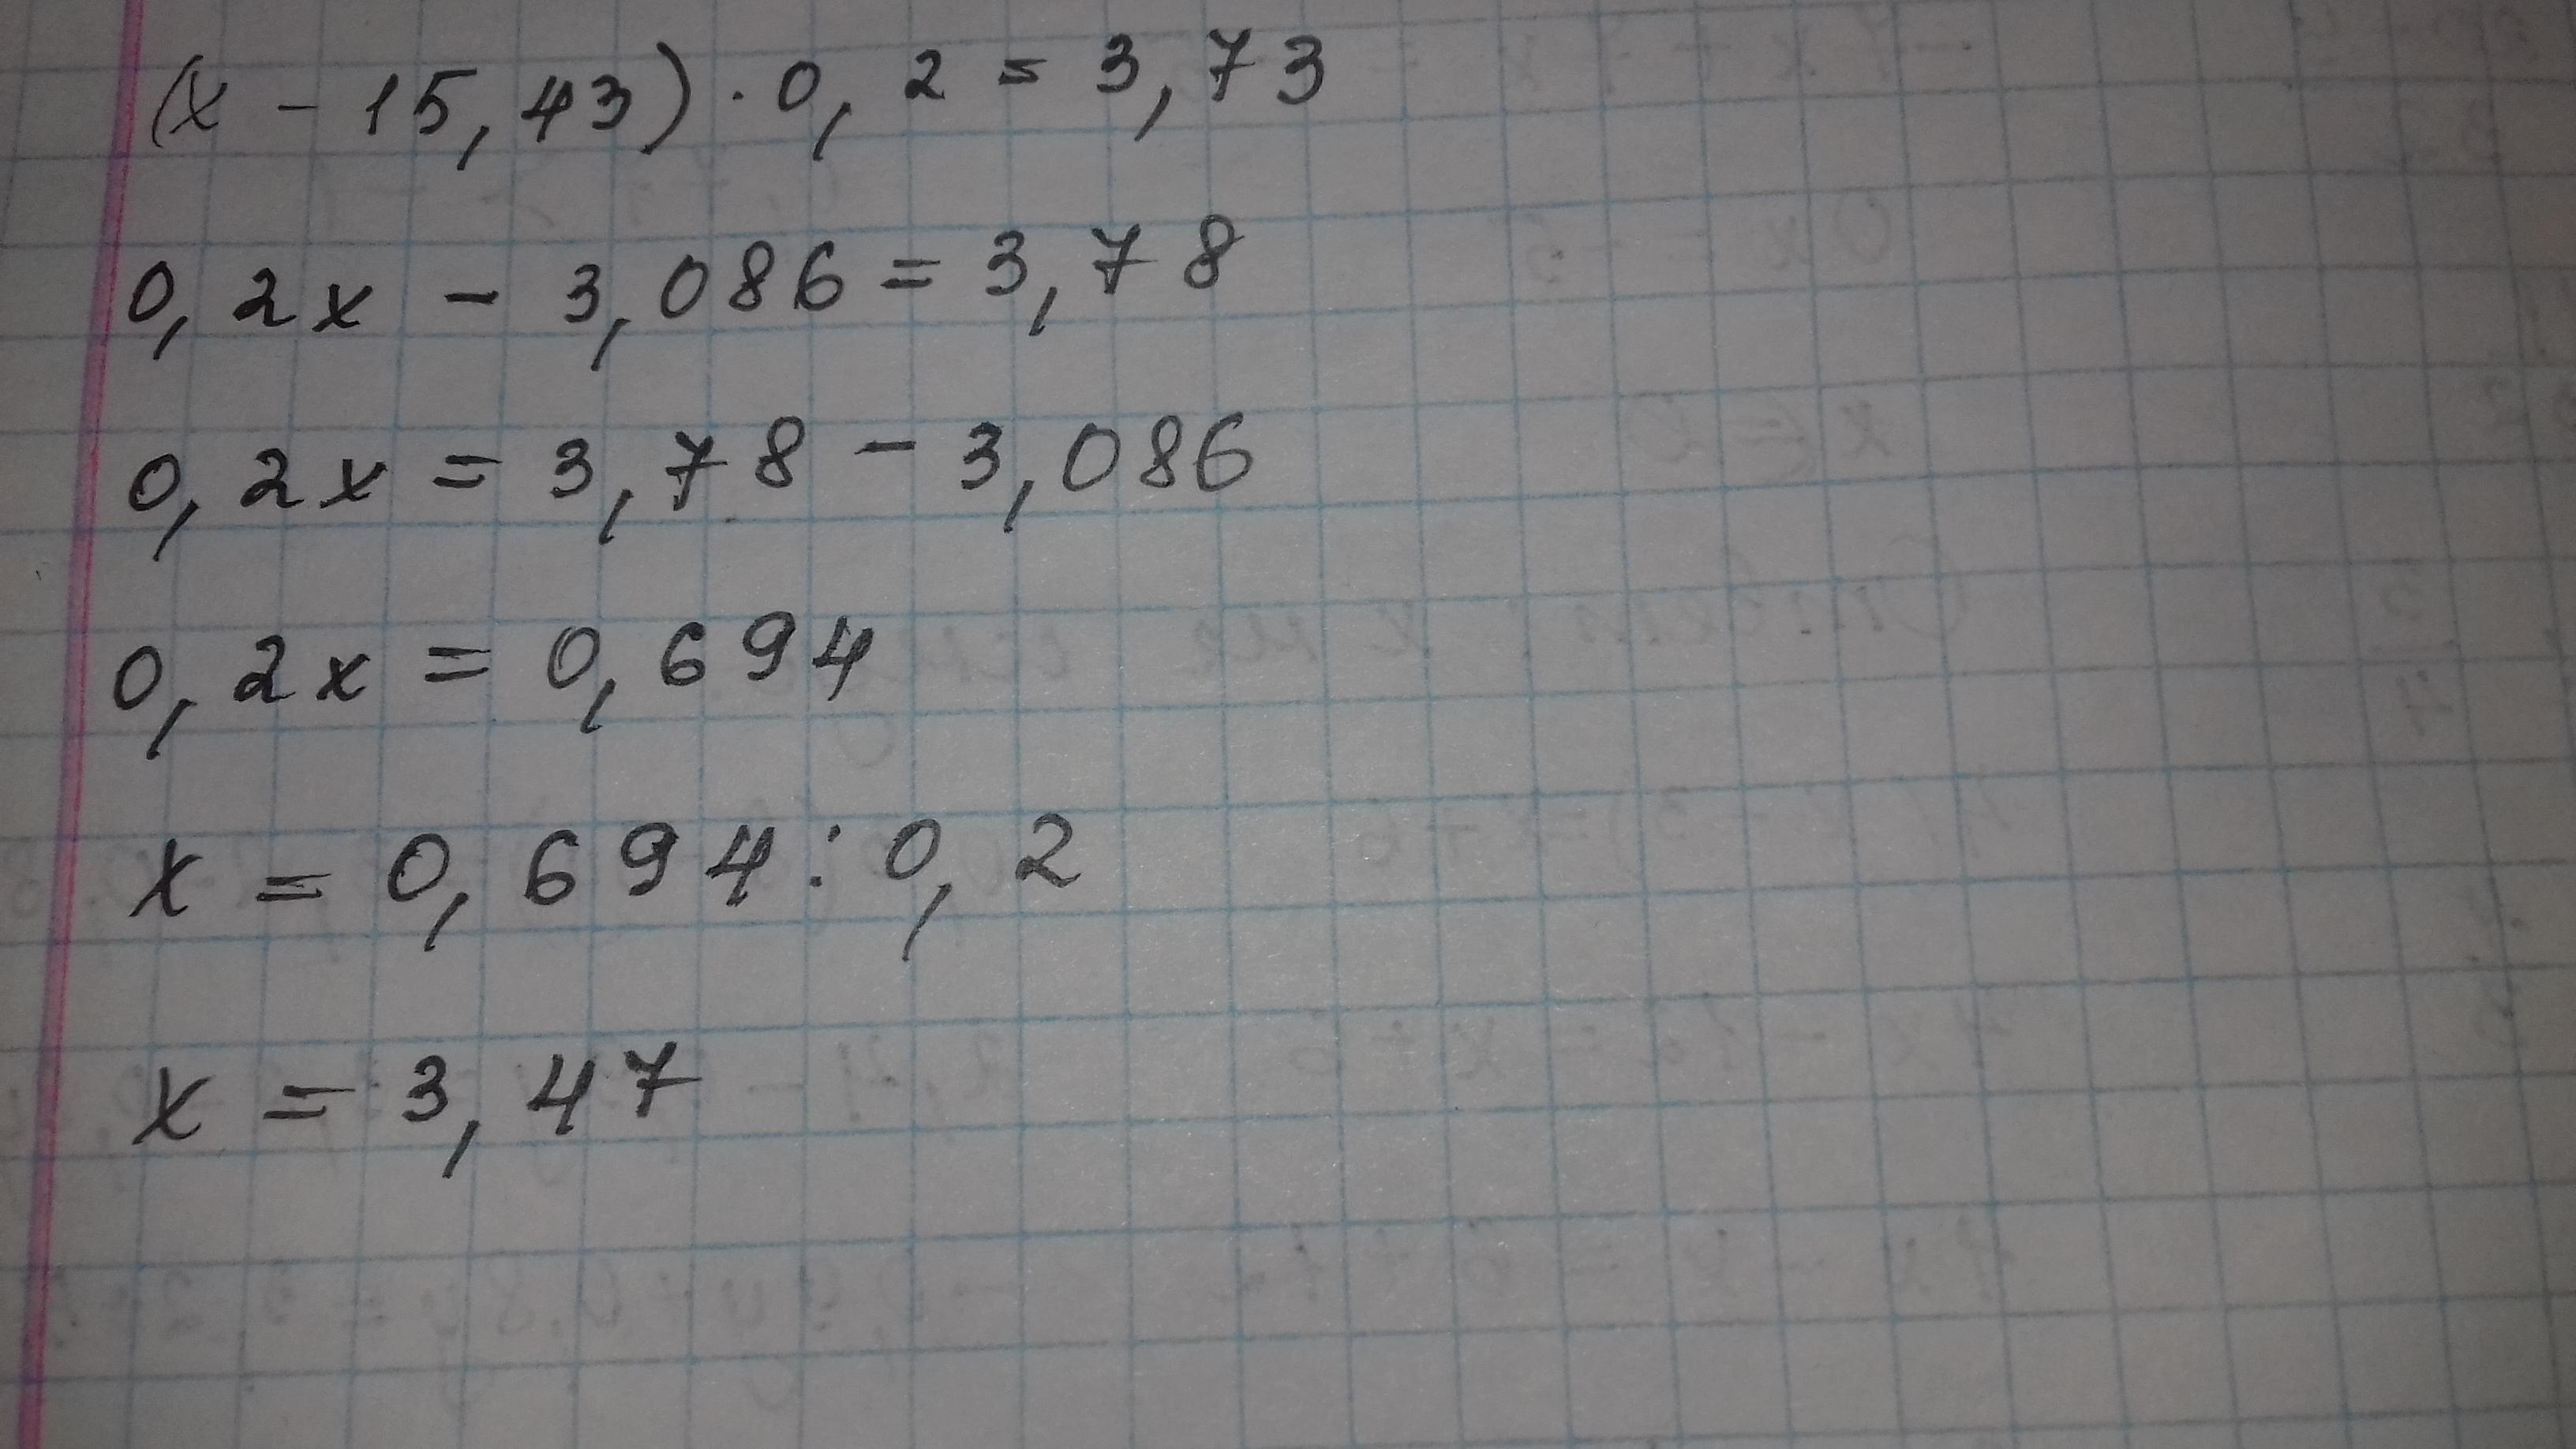 (x - 15,43) · 0,2 = 3,73
0,2x - 3,086 = 3,78
0,2x = 3,78 - 3,086
0,2x = 0,694
x = 0,694 : 0,2
x = 3,47